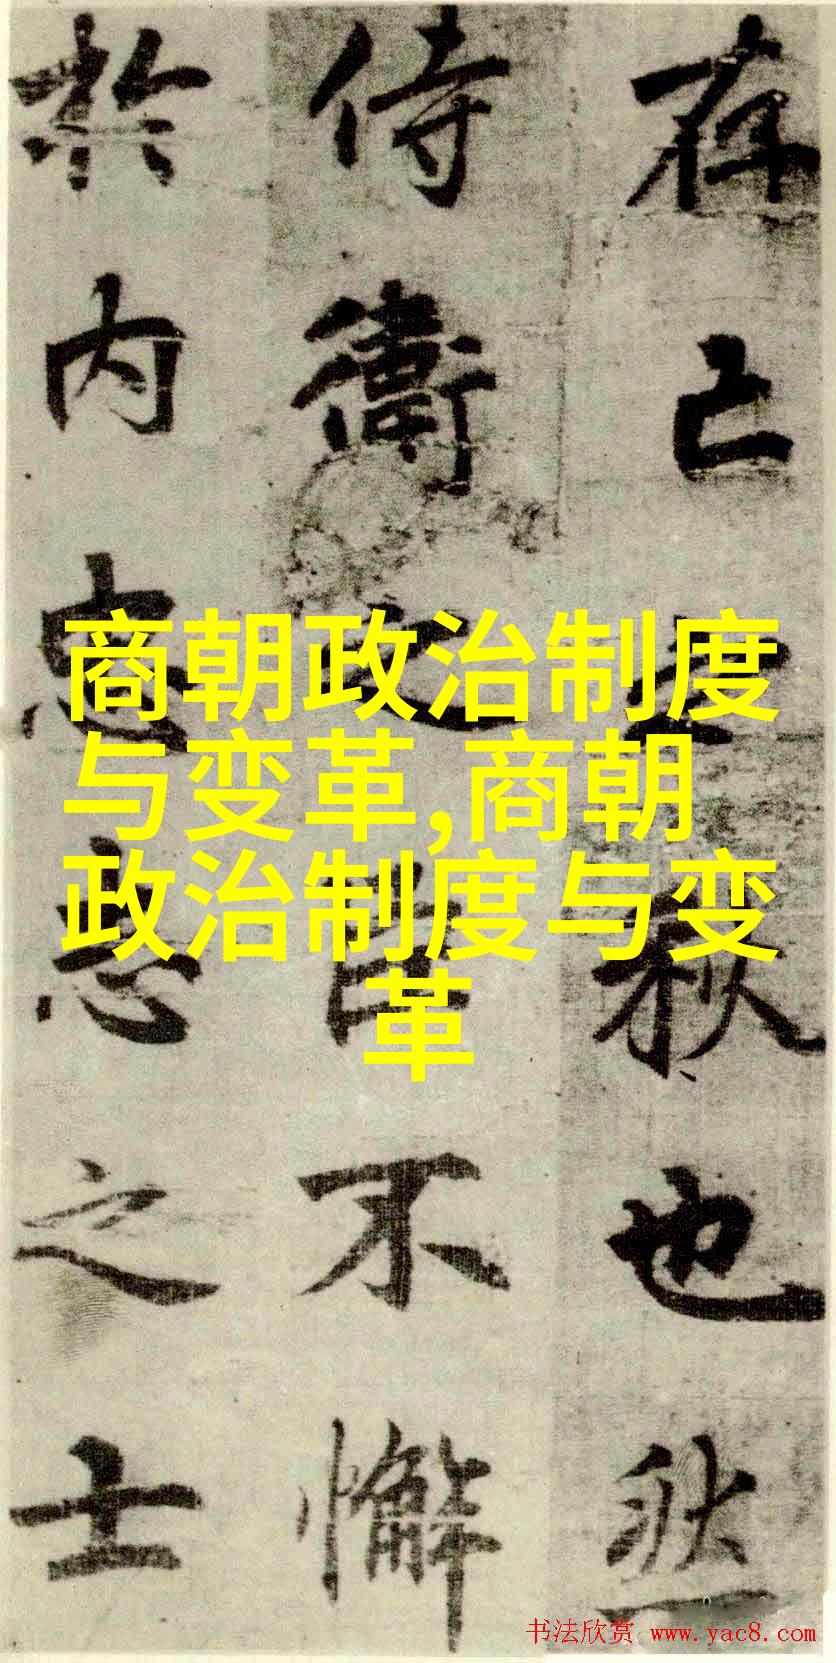 存亡之秋也然
侍衛之臣不懈
於内忠志之士
商朝政治制度
与变革,商朝
政治制度与变
革
书法欣赏 www.yac8.com